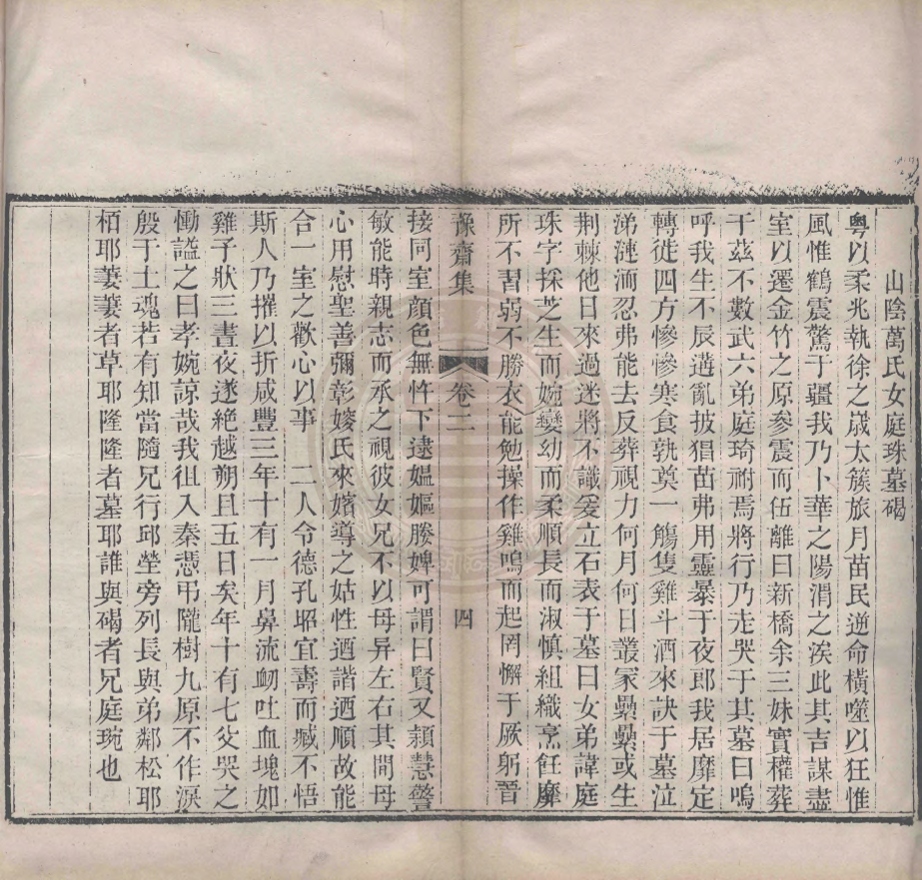 山陰萬氏女庭珠墓碣
粵以柔兆執徐之歲太簇旅月苗民逆命橫噬以狂惟
風惟鶴震驚于疆我乃卜華之陽渭之涘此其吉謀盡
室以遷金竹之原參震而伍離曰新橋余三妹實權葬
于茲不數武六弟庭琦祔焉將行乃走哭于其墓曰嗚
呼我生不辰遘亂披猖苗弗用靈暴于夜郎我居靡定
轉徙四方慘慘寒食孰奠一觴隻雞斗酒來訣于墓泣
涕漣洏忍弗能去反葬視力何月何日叢冢纍纍或生
荆棘他日來過迷將不識爰立石表于墓曰女弟諱庭
珠字採芝生而婉孌幼而柔順長而淑慎組織烹飪靡
所不習弱不勝衣能勉操作雞鳴而起罔懈于厥躬晉
豫齋集 卷二 四
接同室顏色無忤下逮媼嫗媵婢可謂曰賢又潁慧警
敏能時親志而承之視彼女兄不以母异左右其閒母
心用慰聖善彌彰婈氏來嬪導之姑性迺諧迺順故能
合一室之歡心以事 二人令德孔昭宜壽而臧不悟
斯人乃摧以折咸豐三年十有一月鼻流衂吐血塊如
雞子狀三晝夜遂絕越朔且五日矣年十有七父哭之
慟謚之曰孝婉諒哉我徂入秦憑弔隴樹九原不作淚
殷于土魂若有知當隨兄行邱塋旁列長與弟鄰松耶
栢耶萋萋者草耶隆隆者墓耶誰與碣者兄庭琬也